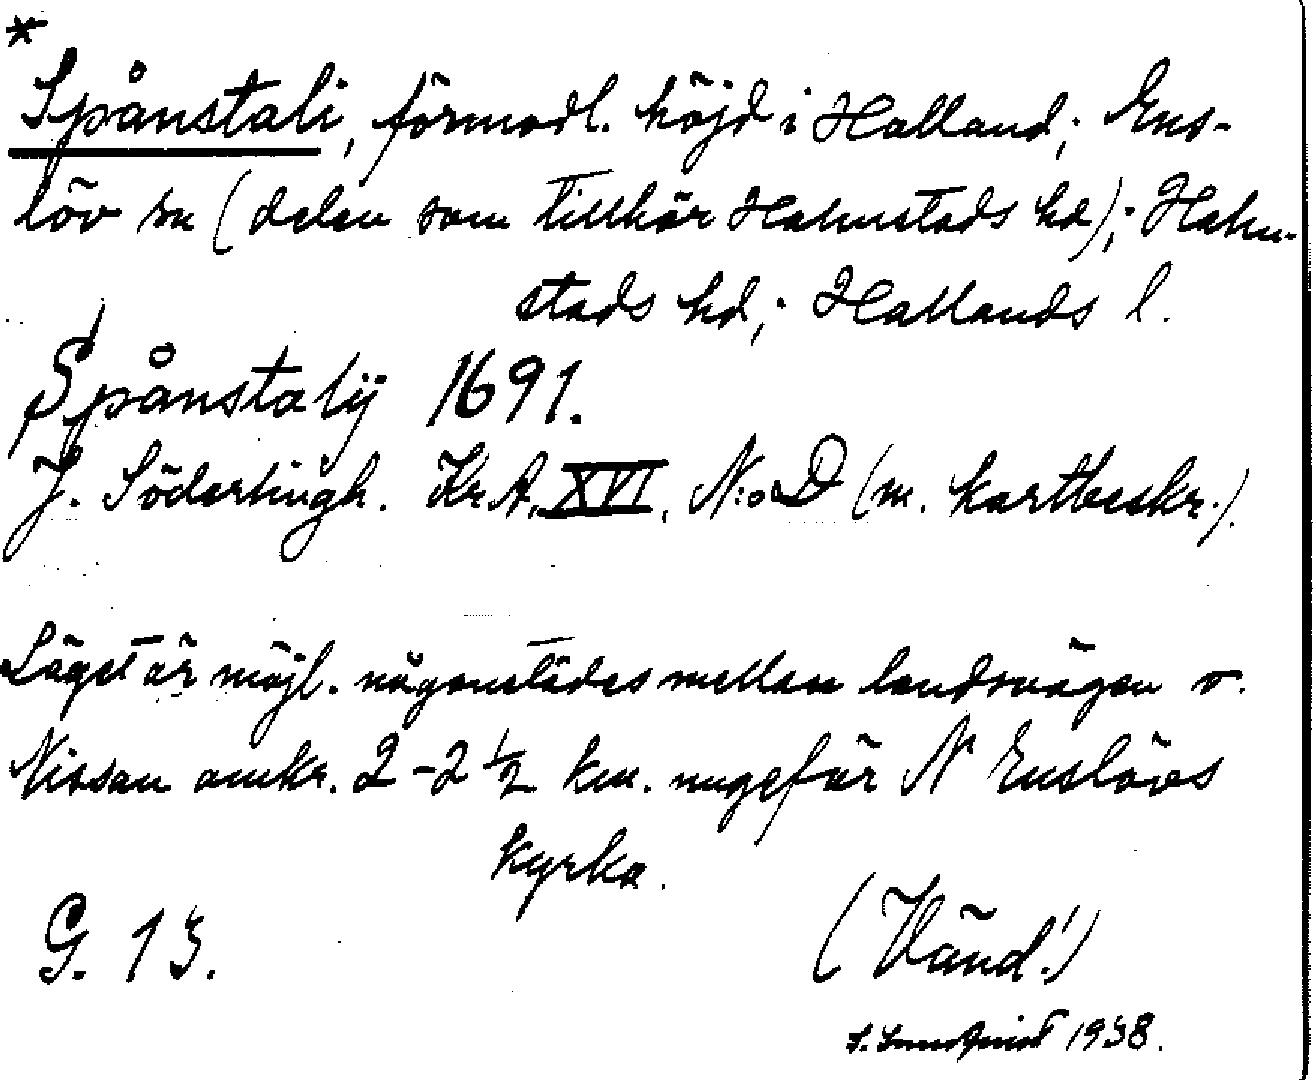 *
Spånstali, förmodl. höjd i Halland; Ens-
löv sn (delen som tillhör Halmstads hd); Halm-
stads hd; Hallands l.
Spånstalij 1691.
J. Söderlingh. Kr.A. XVI, N:o D (m. kartbeskr.)
Läget är möjl. någonstädes mellan landsvägen o.
Nissan omkr. 2-2½ km. ungefär N Enslövs
kyrka.
G. 13.
(Vänd!)
1938.